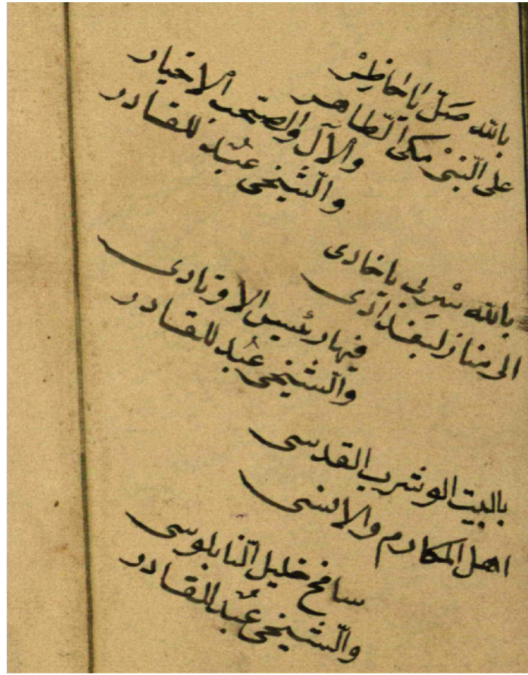 بالله صَلّ يا حاظِرْ
على النّبىْ مكى الطّاهر
والآل والصّحب الاخيار
والشّيخى عَبْد للقادر
بالله سْيرى يا حادى
الى منازل بغدادى
فيها رئيس الاوتادى
والشّيخى عَبْد للقادر
بالبيت الوشرب القدسى
اهل المكارم والانسى
سامح خليل النّابلوسى
والشّيخى عَبْد القادر